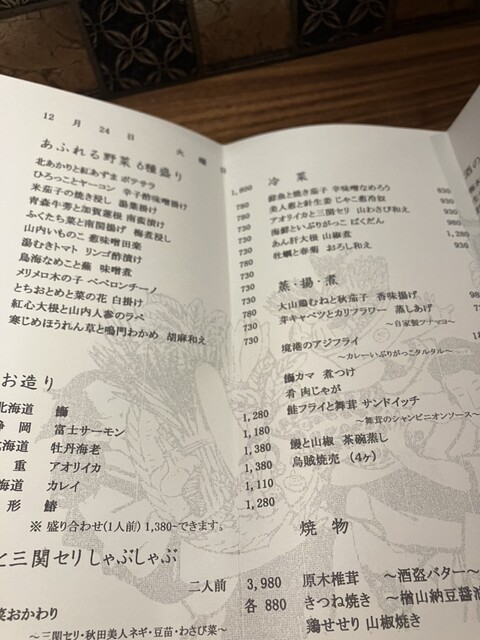 12月24日 火曜日
あふれる野菜 6種盛り 1,800
北あかりと紅あずま ポテサラ 780
ひろっことヤーコン 辛子酢味噌掛け 780
米茄子の焼き浸し 湯葉掛け
青森牛蒡と加賀蓮根 南蛮漬け
ふくたち菜と南関揚げ 梅煮浸し 730
山内いものこ 葱味噌田楽
湯むきトマト リンゴ酢漬け
鳥海なめこと蕪 味噌煮
メリメロ木の子 ペペロンチーノ
とちおとめと菜の花 白掛け
紅心大根と山内人参のラペ 730
寒じめほうれん草と鳴門わかめ 胡麻和え 730
お造り
北海道
静岡 富士サーモン 1,280
北海道 牡丹海老 1,180
三重 アオリイカ 1,380
北海道 カレイ 1,380
山形 鰆 1,110
1,280
※ 盛り合わせ(1人前) 1,380~できます。
と三関セリしゃぶしゃぶ
二人前 3,980
菜おかわり 各 880
~三関セリ・秋田美人ネギ・豆苗・わさび菜~
冷菜
焼き茄子 辛味噌なめろう 930
美人葱と針生姜 じゃこ葱冷奴 830
アオリイカと三関セリ 山わさび和え 930
海鮮といぶりがっこ ばくだん 980
あん肝大根 山椒煮 1,280
牡蠣と春菊 おろし和え 930
蒸・揚・煮
大山鶏むねと秋茄子 香味揚げ
芽キャベツとカリフラワー 蒸しあげ
~自家製ツナマヨ~
境港のアジフライ
~カレーいぶりがっこタルタル~
カマ 煮つけ
肴 肉じゃが
鮭フライと舞茸 サンドイッチ
~舞茸のシャンピニオンソース~
と山椒 茶碗蒸し
烏賊焼売 (4ヶ)
焼物
原木椎茸 ~酒盗バター~
きつね焼き ~檜山納豆醤油
鶏せせり 山椒焼き